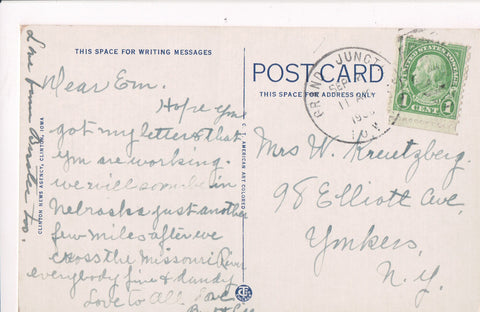 THIS SPACE FOR WRITING MESSAGES
Dear Em.
Hope you
got my letter & that
you are working.
we will soon be in
Nebraska just another
few miles after we
cross the Missouri River
everybody fine & dandy
Love to All Love
Love from
CLINTON NEWS AGENCY, CLINTON, IOWA
AMERICAN ART COLORED
POST CARD
THIS SPACE FOR ADDRESS ONLY
GRAND JUNCT
SEP
11
IOWA
UNITED STATES POSTAGE
1 CENT 1
Mrs W. Kreutzberg.
98 Elliott Ave,
Yonkers,
N.Y.